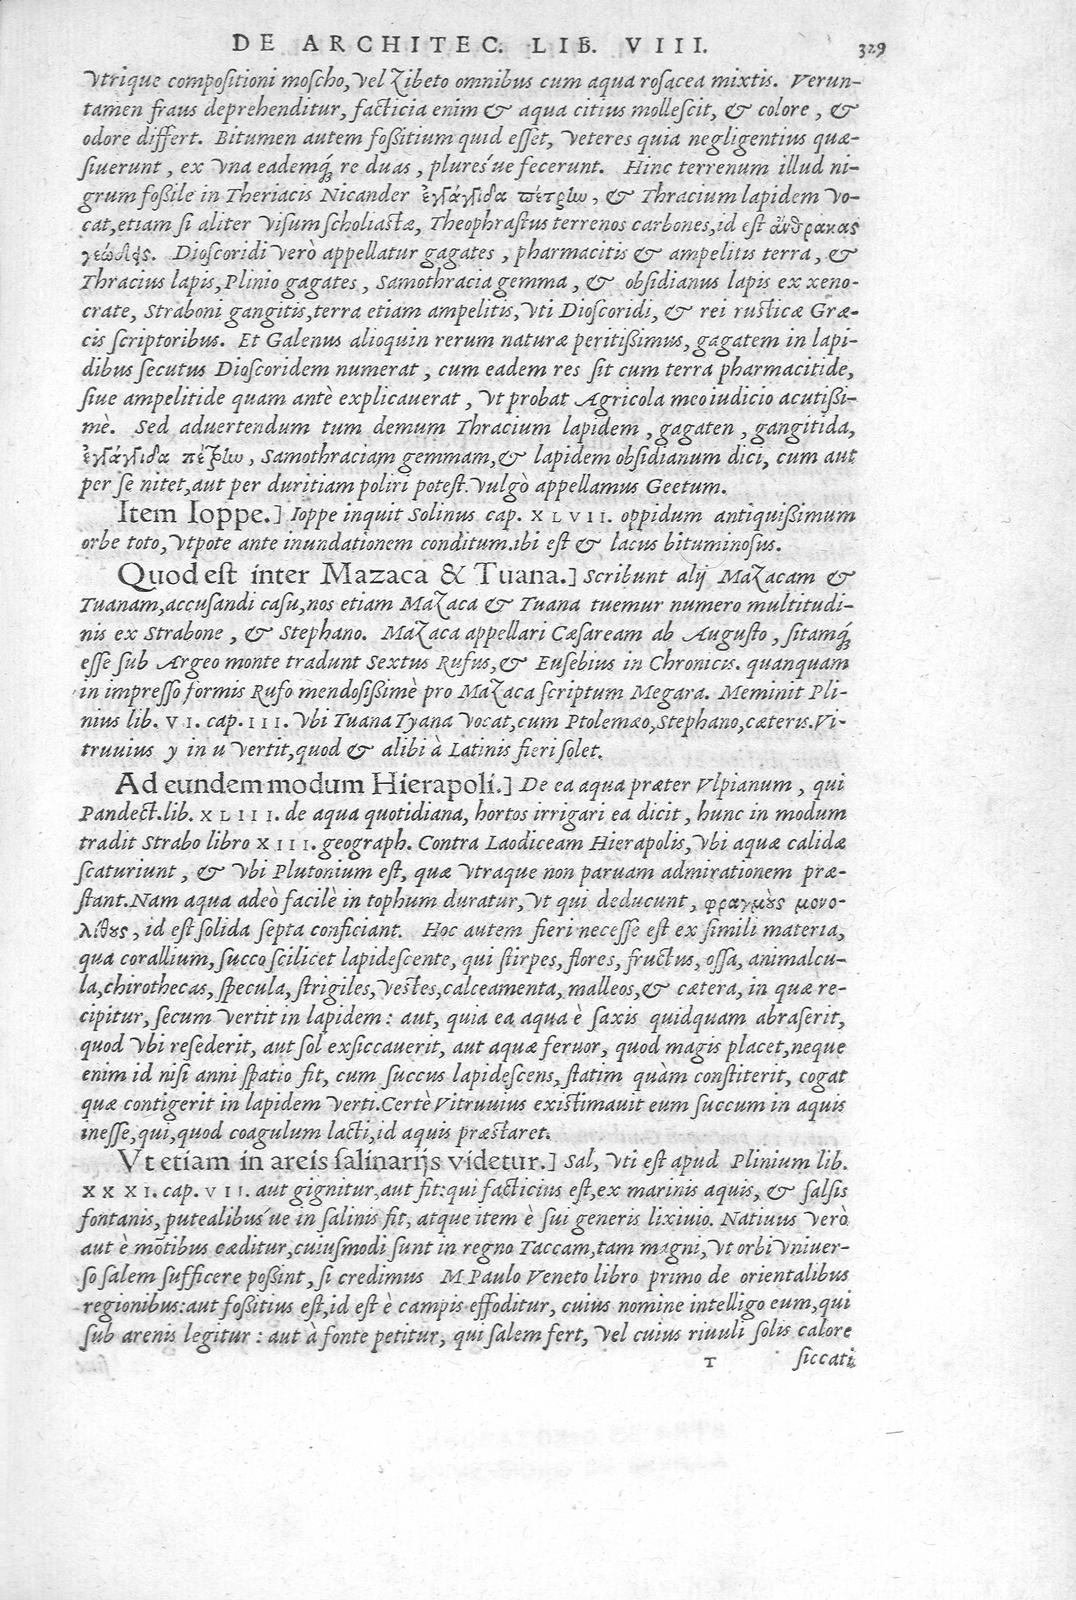 DE ARCHITEC. LIB. VIII. 329
vtrique compositioni moscho, vel Zibeto omnibus cum aqua rosacea mixtis. Verun-
tamen fraus deprehenditur, facticia enim & aqua citius mollescit, & colore, &
odore differt. Bitumen autem foßitium quid esset, veteres quia negligentius quæ-
siuerunt, ex vna eademq́; re duas, plures'ue fecerunt. Hinc terrenum illud ni-
grum foßile in Theriacis Nicander ἐγγάγγιδα πέτρην, & Thracium lapidem vo-
cat, etiam si aliter visum scholiastæ, Theophrastus terrenos carbones, id est ἄνθρακας
γεώδης. Dioscoridi verò appellatur gagates, pharmacitis & ampelitis terra, &
Thracius lapis, Plinio gagates, Samothracia gemma, & obsidianus lapis ex xeno-
crate, Straboni gangitis, terra etiam ampelitis, vti Dioscoridi, & rei rusticæ Græ-
cis scriptoribus. Et Galenus alioquin rerum naturæ peritißimus, gagatem in lapi-
dibus secutus Dioscoridem numerat, cum eadem res sit cum terra pharmacitide,
siue ampelitide quam antè explicauerat, vt probat Agricola meo iudicio acutißi-
mè. Sed aduertendum tum demum Thracium lapidem, gagaten, gangitida,
ἐγγάγγιδα πέτρην, Samothraciam gemmam, & lapidem obsidianum dici, cum aut
per se nitet, aut per duritiam poliri potest. vulgò appellamus Geetum.
Item Ioppe.] Ioppe inquit Solinus cap. XLVII. oppidum antiquißimum
orbe toto, vtpote ante inundationem conditum. ibi est & lacus bituminosus.
Quod est inter Mazaca & Tuana.] Scribunt alij MaZacam &
Tuanam, accusandi casu, nos etiam MaZaca & Tuana tuemur numero multitudi-
nis ex Strabone, & Stephano. MaZaca appellari Cæsaream ab Augusto, sitamq́;
esse sub Argeo monte tradunt Sextus Rufus, & Eusebius in Chronicis. quanquam
in impresso formis Rufo mendosißimè pro MaZaca scriptum Megara. Meminit Pli-
nius lib. VI. cap. III. vbi Tuana Tyana vocat, cum Ptolemæo, Stephano, cæteris. Vi-
truuius y in u vertit, quod & alibi à Latinis fieri solet.
Ad eundem modum Hierapoli.] De ea aqua præter Vlpianum, qui
Pandect. lib. XLIII. de aqua quotidiana, hortos irrigari ea dicit, hunc in modum
tradit Strabo libro XIII. geograph. Contra Laodiceam Hierapolis, vbi aquæ calidæ
scaturiunt, & vbi Plutonium est, quæ vtraque non paruam admirationem præ-
stant. Nam aqua adeò facilè in tophum duratur, vt qui deducunt, φραγμοὺς μονο-
λίθους, id est solida septa conficiant. Hoc autem fieri necesse est ex simili materia,
qua corallium, succo scilicet lapidescente, qui stirpes, flores, fructus, ossa, animalcu-
la, chirothecas, specula, strigiles, vestes, calceamenta, malleos, & cætera, in quæ re-
cipitur, secum vertit in lapidem: aut, quia ea aqua è saxis quidquam abraserit,
quod vbi resederit, aut sol exsiccauerit, aut aquæ feruor, quod magis placet, neque
enim id nisi anni spatio fit, cum succus lapidescens, statim quàm constiterit, cogat
quæ contigerit in lapidem verti. Certè Vitruuius existimauit eum succum in aquis
inesse, qui, quod coagulum lacti, id aquis præstaret.
Vt etiam in areis salinarijs videtur.] Sal, vti est apud Plinium lib.
XXXI. cap. VII. aut gignitur, aut fit: qui facticius est, ex marinis aquis, & salsis
fontanis, putealibus'ue in salinis fit, atque item è sui generis lixiuio. Natiuus verò
aut è mōtibus cæditur, cuiusmodi sunt in regno Taccam, tam magni, vt orbi vniuer-
so salem sufficere poßint, si credimus M Paulo Veneto libro primo de orientalibus
regionibus: aut foßitius est, id est è campis effoditur, cuius nomine intelligo eum, qui
sub arenis legitur: aut à fonte petitur, qui salem fert, vel cuius riuuli solis calore
T siccati